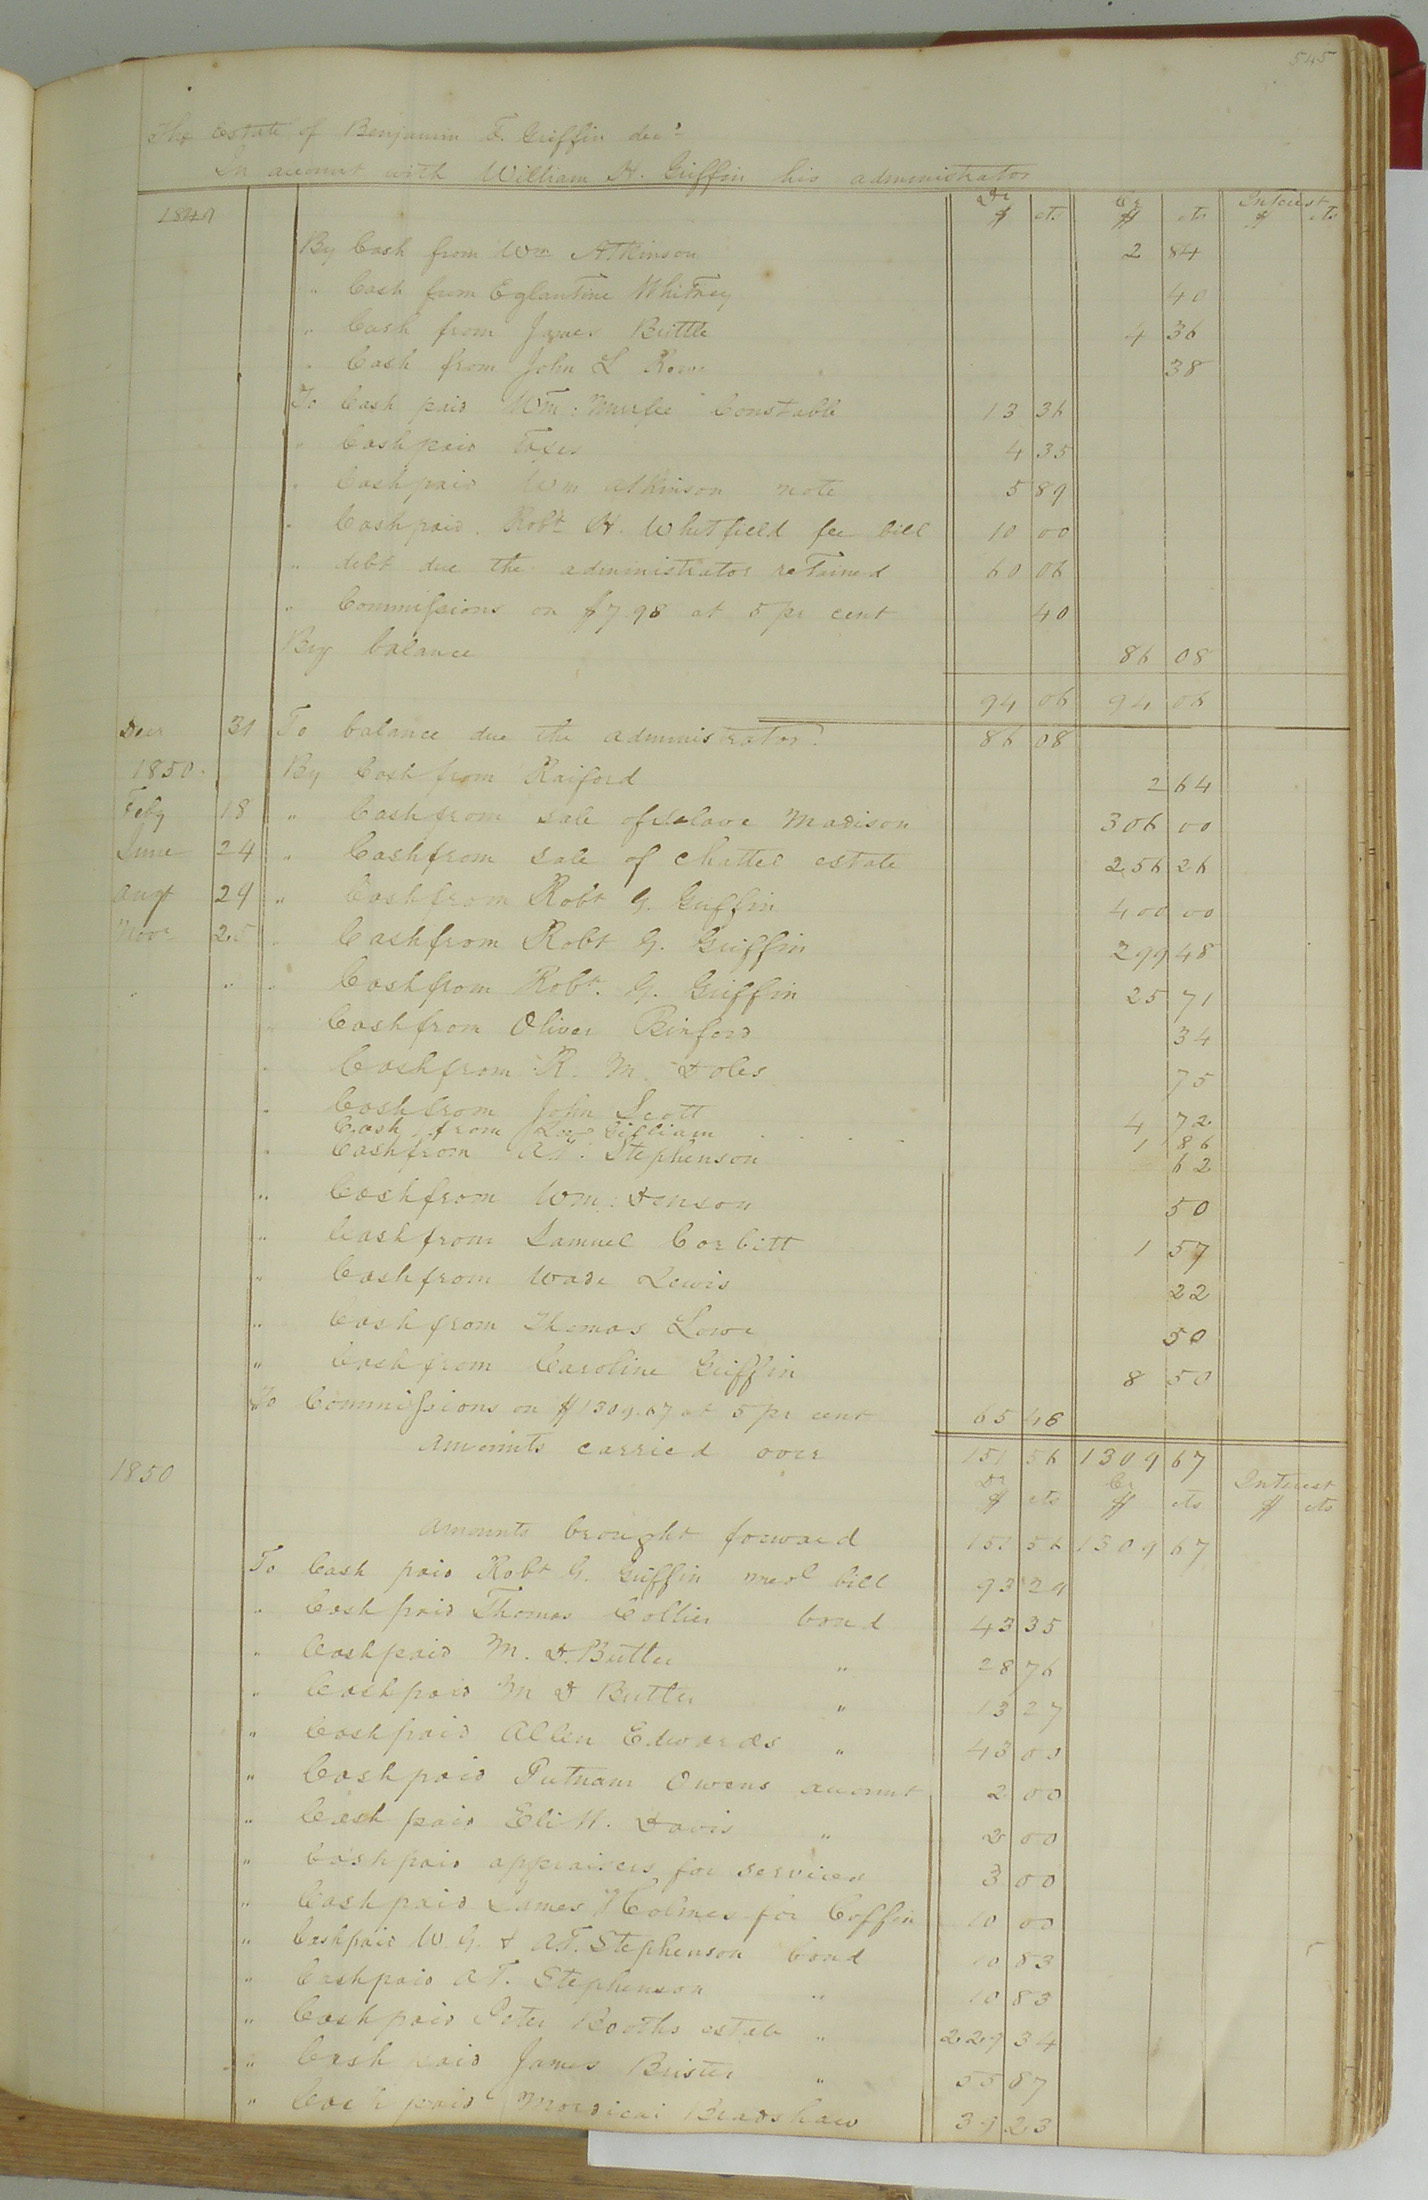 545
The Estate of Benjamin F. Griffin decd
In account with William H. Griffin his administrator
Dr Cr Interest
1849 $ cts $ cts $ cts
By Cash from Wm Atkinson 2 84
" Cash from Eglantine Whitney 40
" Cash from James Brittle 4 36
" Cash from John L Rowe 38
To Cash paid Wm: Murfee Constable 13 36
" Cash paid Taxes 4 35
" Cash paid Wm Atkinson note 5 89
" Cash paid Robt H. Whitfield fee bill 10 00
" debt due the administrator retained 60 06
" Commissions on $7.98 at 5 pr cent 40
By balance 86 08
94 06 94 06
Decr 31 To balance due the administrator. 86 08
1850. By Cash from Raiford 2 64
Feby 18 " Cash from sale of slave Madison 306 00
June 24 " Cash from sale of chattel estate 256 26
Augt 29 " Cash from Robt G. Griffin 400 00
Novr 25 " Cash from Robt G. Griffin 299 48
" " " Cash from Robt. G. Griffin 25 71
" Cash from Oliver Binford 34
" Cash from R. M. Doles 75
" Cash from John Scott 4 72
Cash from Gilliam 1 86
" Cash from A.T. Stephenson 62
" Cash from Wm: Denson 50
" Cash from Samuel Corbitt 1 57
" Cash from Wade Lewis 22
" Cash from Thomas Lowe 50
" Cash from Caroline Griffin 8 50
To Commissions on $1309.67 at 5 pr cent 65 48
Amounts carried over 151 56 1309 67
1850 Dr Cr Interest
$ cts $ cts $ cts
Amounts brought forward 151 56 1309 67
To Cash paid Robt G. Griffin medl bill 93 29
" Cash paid Thomas Collier bond 43 35
" Cash paid M. D. Butler " 28 76
" Cash paid M D Butler " 13 27
" Cash paid Allen Edwards " 43 00
" Cash paid Putnam Owens account 2 00
" Cash paid Eli H. Davis " 2 00
" Cash paid appraisers for services 3 00
" Cash paid James Holmes for Coffin 10 00
" Cash paid W. G. & A.T. Stephenson bond 10 83
" Cash paid A T. Stephenson " 10 83
" Cash paid Peter Booths estate " 229 34
" Cash paid James Brister " 55 87
" Cash paid Mordicai Bradshaw 39 23